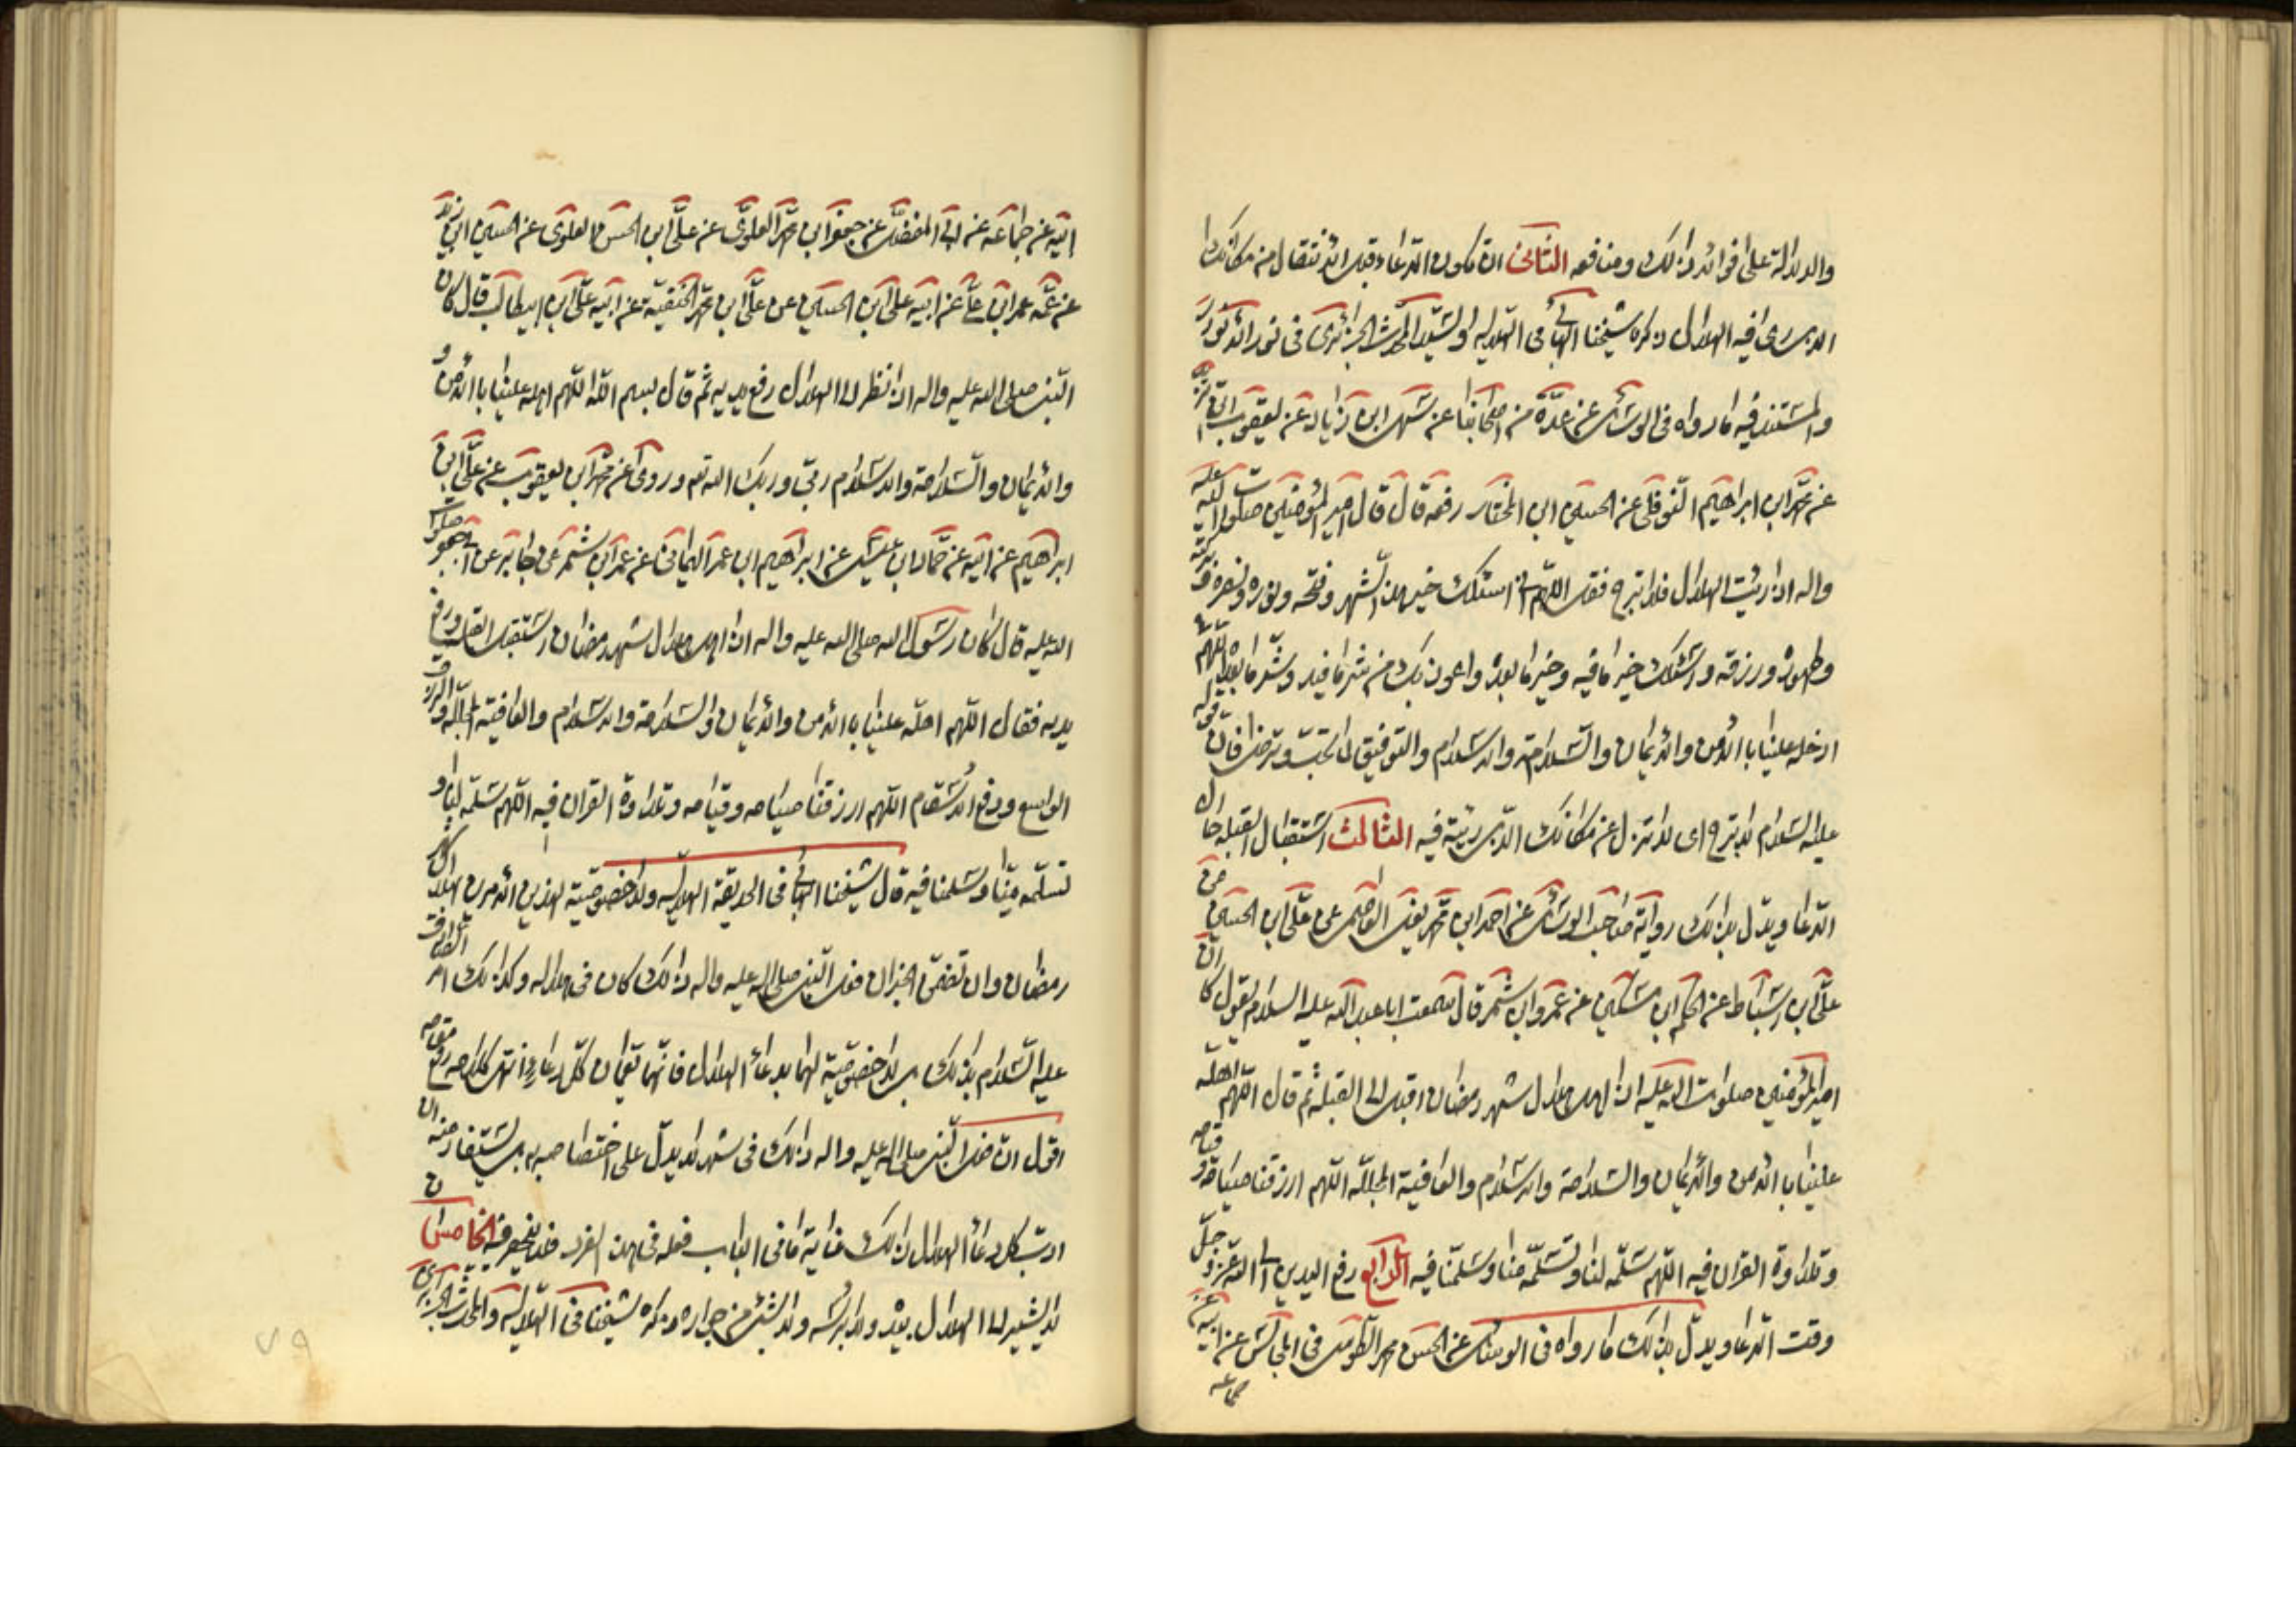 والدلالة على فوائد ذلك ومنافعه الثاني ان يكون الدعاء قبل الانتقال من مكانك
الذي رأى فيه الهلال ذكره شيخنا البهائي في الهلالية والسيد المحدث الجزائري في نور الانوار
والمستند فيه ما رواه في الوسائل عن عدة من اصحابنا عن سهل ابن زياد عن يعقوب ابن
عن محمد ابن ابراهيم النوفلي عن الحسين ابن المختار رفعه قال قال امير المؤمنين صلوات الله عليه
واله اذا رئيت الهلال فلا تبرح فقل اللهم اني اسئلك خير هذا الشهر وفتحه ونوره ونصره وبركته
وطهوره ورزقه واسئلك خير ما فيه وخير ما بعده واعوذ بك من شر ما فيه وشر ما بعده اللهم
ادخله علينا بالامن والايمان والسلامة والاسلام والتوفيق لما تحب وترضى فان قوله
عليه السلام لا تبرح اى لا تزل عن مكانك الذي رئيته فيه الثالث استقبال القبلة حال
الدعا ويدل بذلك رواية صاحب الوسائل عن احمد ابن محمد يعني العاصمي عن علي ابن الحسين عن
علي ابن اسباط عن الحكم ابن مسكين عن عمرو ابن شمر قال سمعت ابا عبد الله عليه السلام يقول كان
امير المؤمنين صلوات الله عليه اذا اهل هلال شهر رمضان اقبل الى القبلة ثم قال اللهم اهله
علينا بالامن والايمان والسلامة والاسلام والعافية المجللة اللهم ارزقنا صيامه وقيامه
وتلاوة القران فيه اللهم سلمه لنا وتسلمه منا وسلمنا فيه الرابع رفع اليدين الى الله عز وجل
وقت الدعا ويدل بذلك ما رواه في الوسائل عن الحسن محمد الطوسي في المجالس عن ابيه عن
جماعه
ابيه عن جماعه عن ابي المفضل عن جعفر ابن محمد العلوي عن علي ابن الحسن العلوي عن الحسين ابن زيد
عن عمه عمر ابن علي عن ابيه علي ابن الحسين عن علي ابن محمد الحنفية عن ابيه علي ابن ابيطالب قال كان
النبي صلى الله عليه واله اذا نظر الى الهلال رفع يديه ثم قال بسم الله اللهم اهله علينا بالامن و
والايمان والسلامة والاسلام ربي وربك الله تم وروى عن محمد ابن يعقوب عن علي ابن
ابراهيم عن ابيه عن حماد ابن عيسى عن ابراهيم ابن عمر اليماني عن عمر ابن شمر عن جابر عن ابي جعفر صلوات
الله عليه قال كان رسول الله صلى الله عليه واله اذا اهل هلال شهر رمضان استقبل القبلة ورفع
يديه فقال اللهم اهله علينا بالامن والايمان والسلامة والاسلام والعافية المجللة والرزق
الواسع ودفع الاسقام اللهم ارزقنا صيامه وقيامه وتلاوة القران فيه اللهم سلمه لنا و
تسلمه منا وسلمنا فيه قال شيخنا البهائي في الحديقة الهلالية ولا خصوصية لهذين الامرين بهلال
رمضان وان تضمن الخبران فعل النبي صلى الله عليه واله ذلك كان في هلاله وكذلك امر الصادق
عليه السلام بذلك بل لا خصوصية لهما بدعاء الهلال فانهما تعمان كل دعاء انتهى كلامه رفع مقامه
اقول ان فعل النبي صلى الله عليه واله ذلك في شهر لا يدل على اختصاصه به بل يستفاد منه ان
ادب كل دعاء الهلال ذلك غاية ما في الباب فعله في هذا الفرد فلا ينحصر فيه الخامس ان
لا يشير الى الهلال بيده ولا برأسه ولا بشئ من جوارحه ذكره شيخنا في الهلالية والمحدث الجزايرى